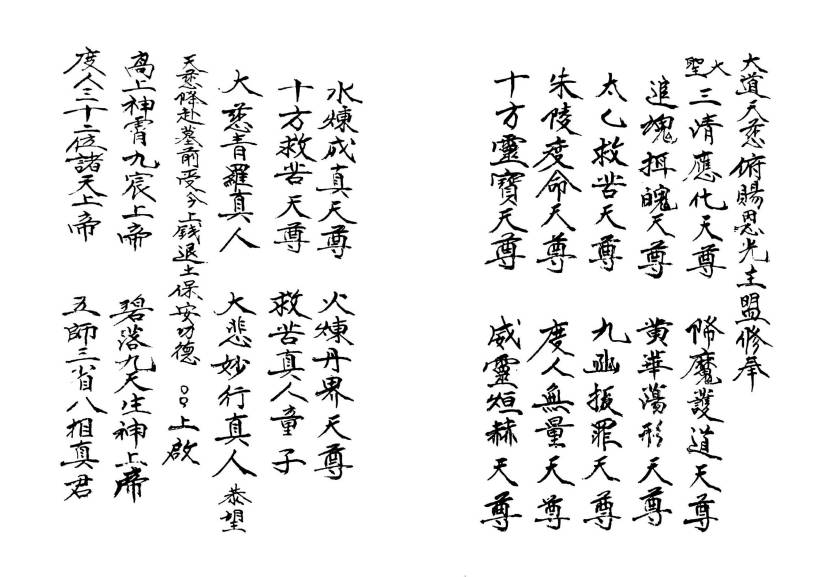 大道天慈俯賜恩光主盟修奉
大聖三清應化天尊 降魔護道天尊
追魂攝魄天尊 黃華蕩形天尊
太乙救苦天尊 九幽拔罪天尊
朱陵度命天尊 度人無量天尊
十方靈寶天尊 威靈烜赫天尊
水煉成真天尊 火煉丹界天尊
十方救苦天尊 救苦真人童子
大慈青羅真人 大悲妙行真人 恭望
天慈降赴墓前受今上錢退土保安功德 上啟
高上神霄九宸上帝 碧落九天生神上帝
度人三十二位諸天上帝 五師三省八相真君